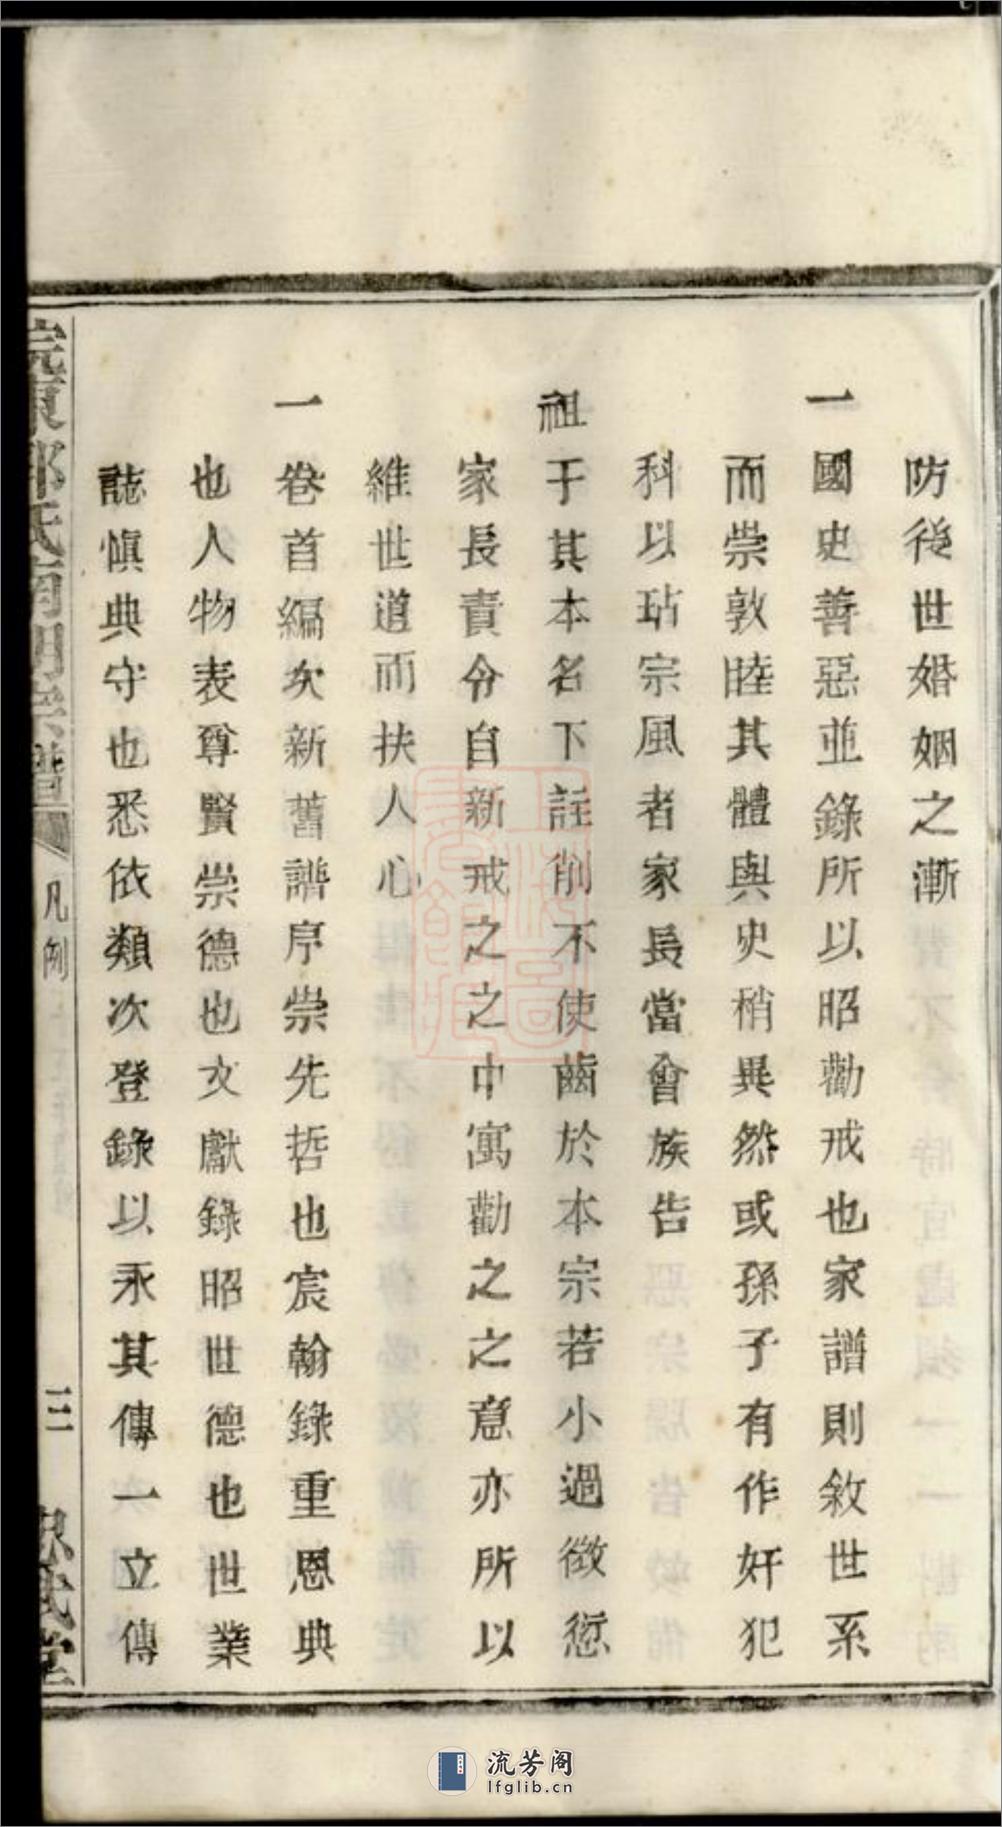 防後世婚姻之漸
一國史善惡並錄所以昭勸戒也家譜則敘世系
而崇敦睦其體與史稍異然或孫子有作奸犯
科以玷宗風者家長當會族告
祖于其本名下註削不使齒於本宗若小過微愆
家長責令自新戒之之中寓勸之之意亦所以
維世道而扶人心
一卷首編次新舊譜序崇先哲也宸翰錄重恩典
也人物表尊賢崇德也文獻錄昭世德也世業
誌慎典守也悉依類次登錄以永其傳一立傳
凡例
三
流芳阁
lfglib.cn